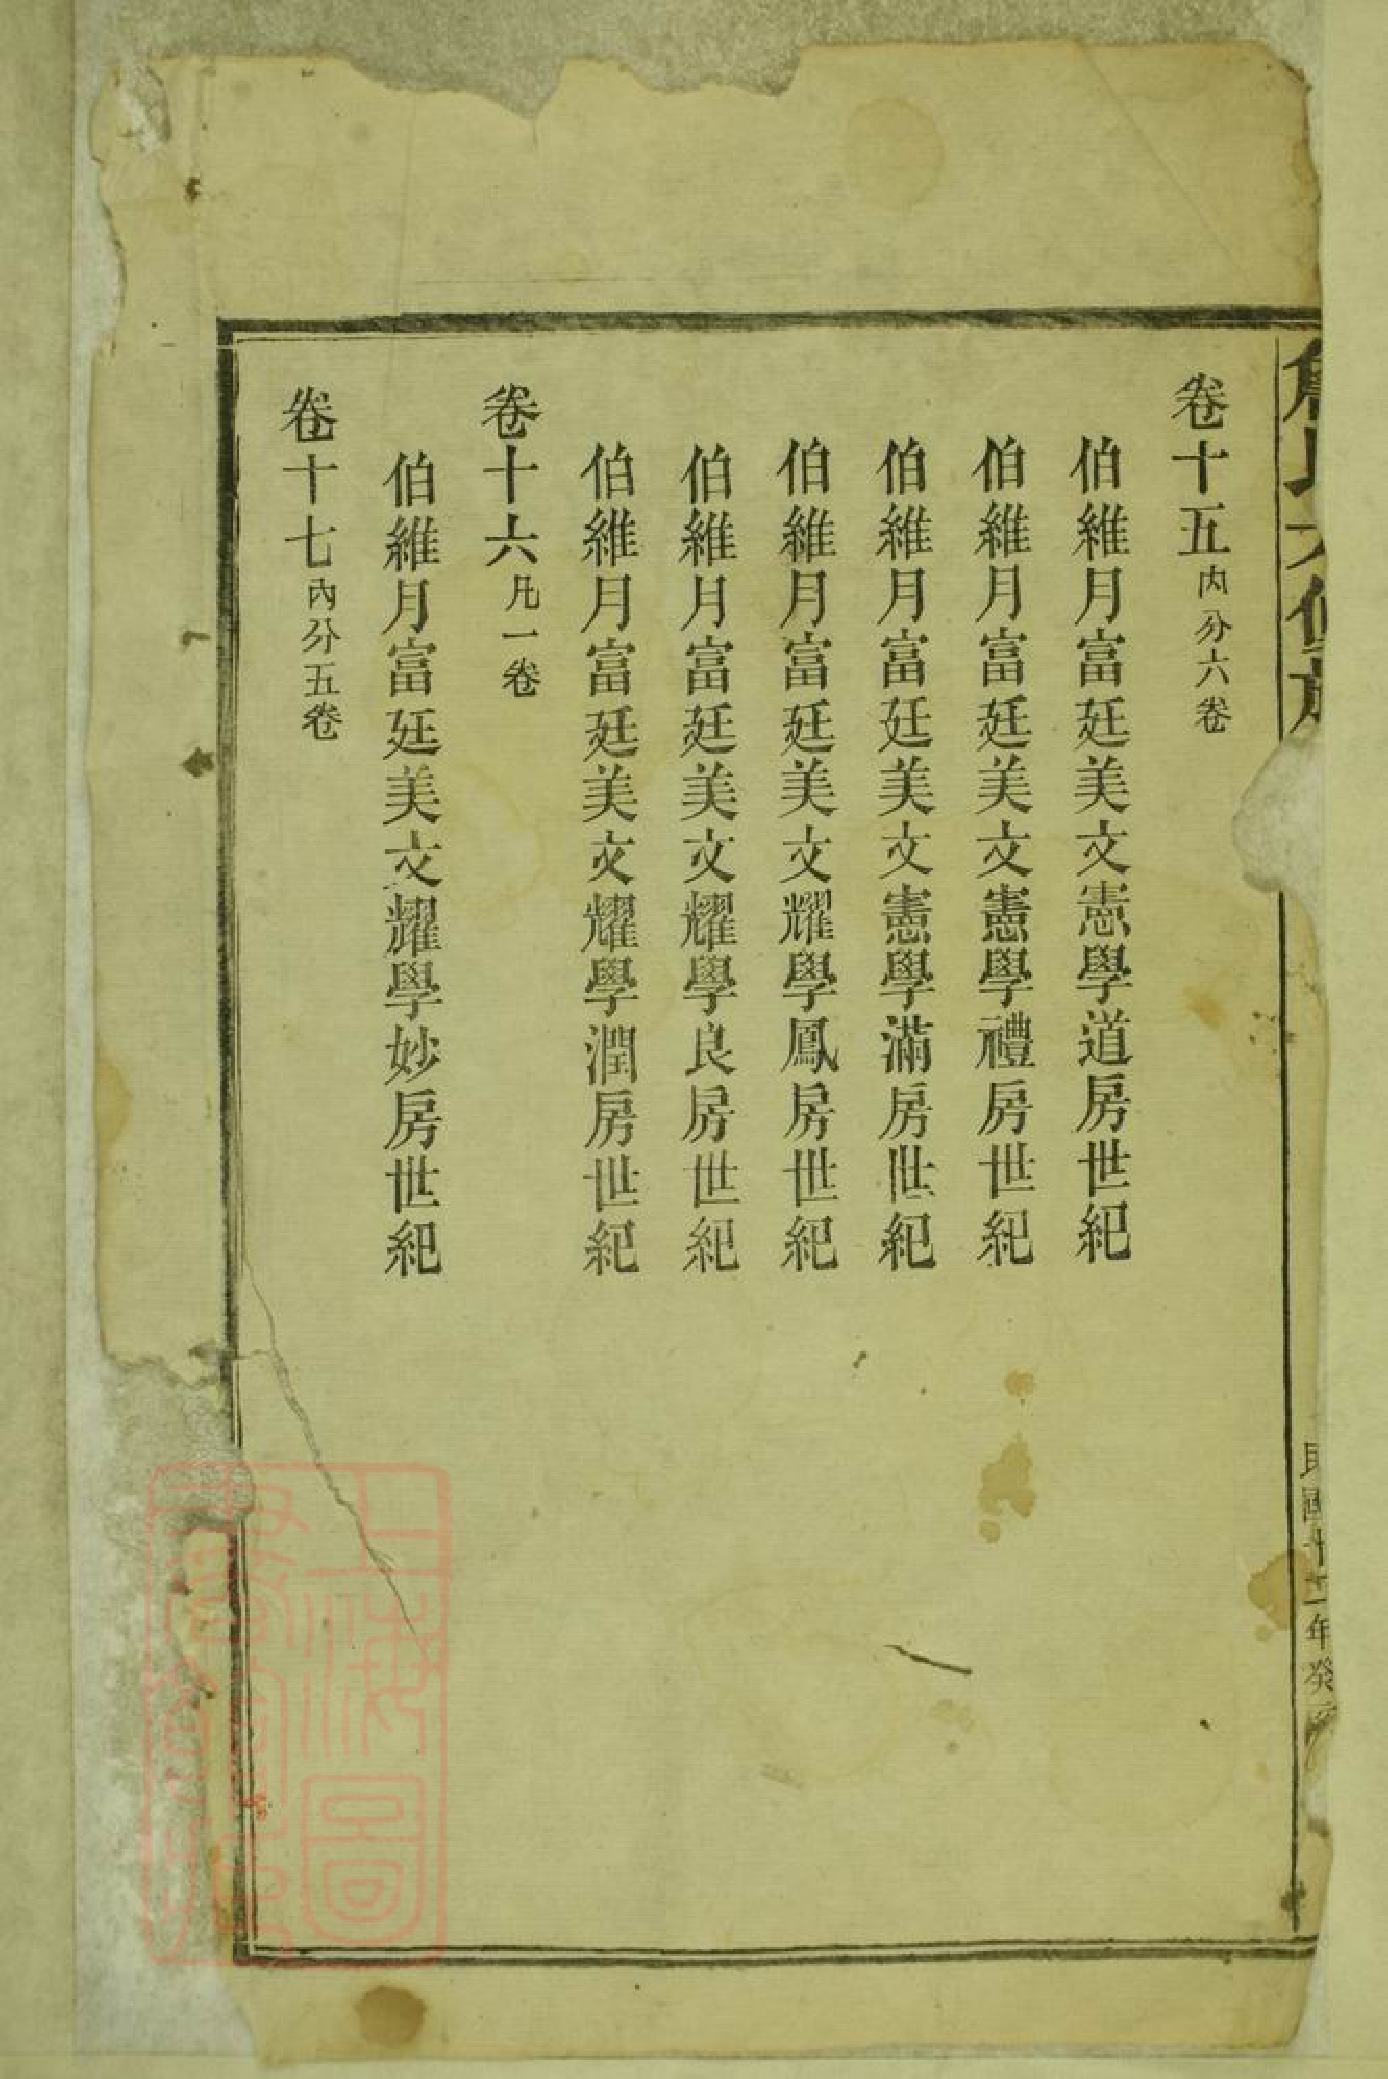 卷十五內分六卷
伯維月富廷美文憲學道房世紀
伯維月富廷美文憲學禮房世紀
伯維月富廷美文憲學滿房世紀
伯維月富廷美文耀學鳳房世紀
伯維月富廷美文耀學良房世紀
伯維月富廷美文耀學潤房世紀
卷十六凡一卷
伯維月富廷美文耀學妙房世紀
卷十七內分五卷
上海圖書館藏